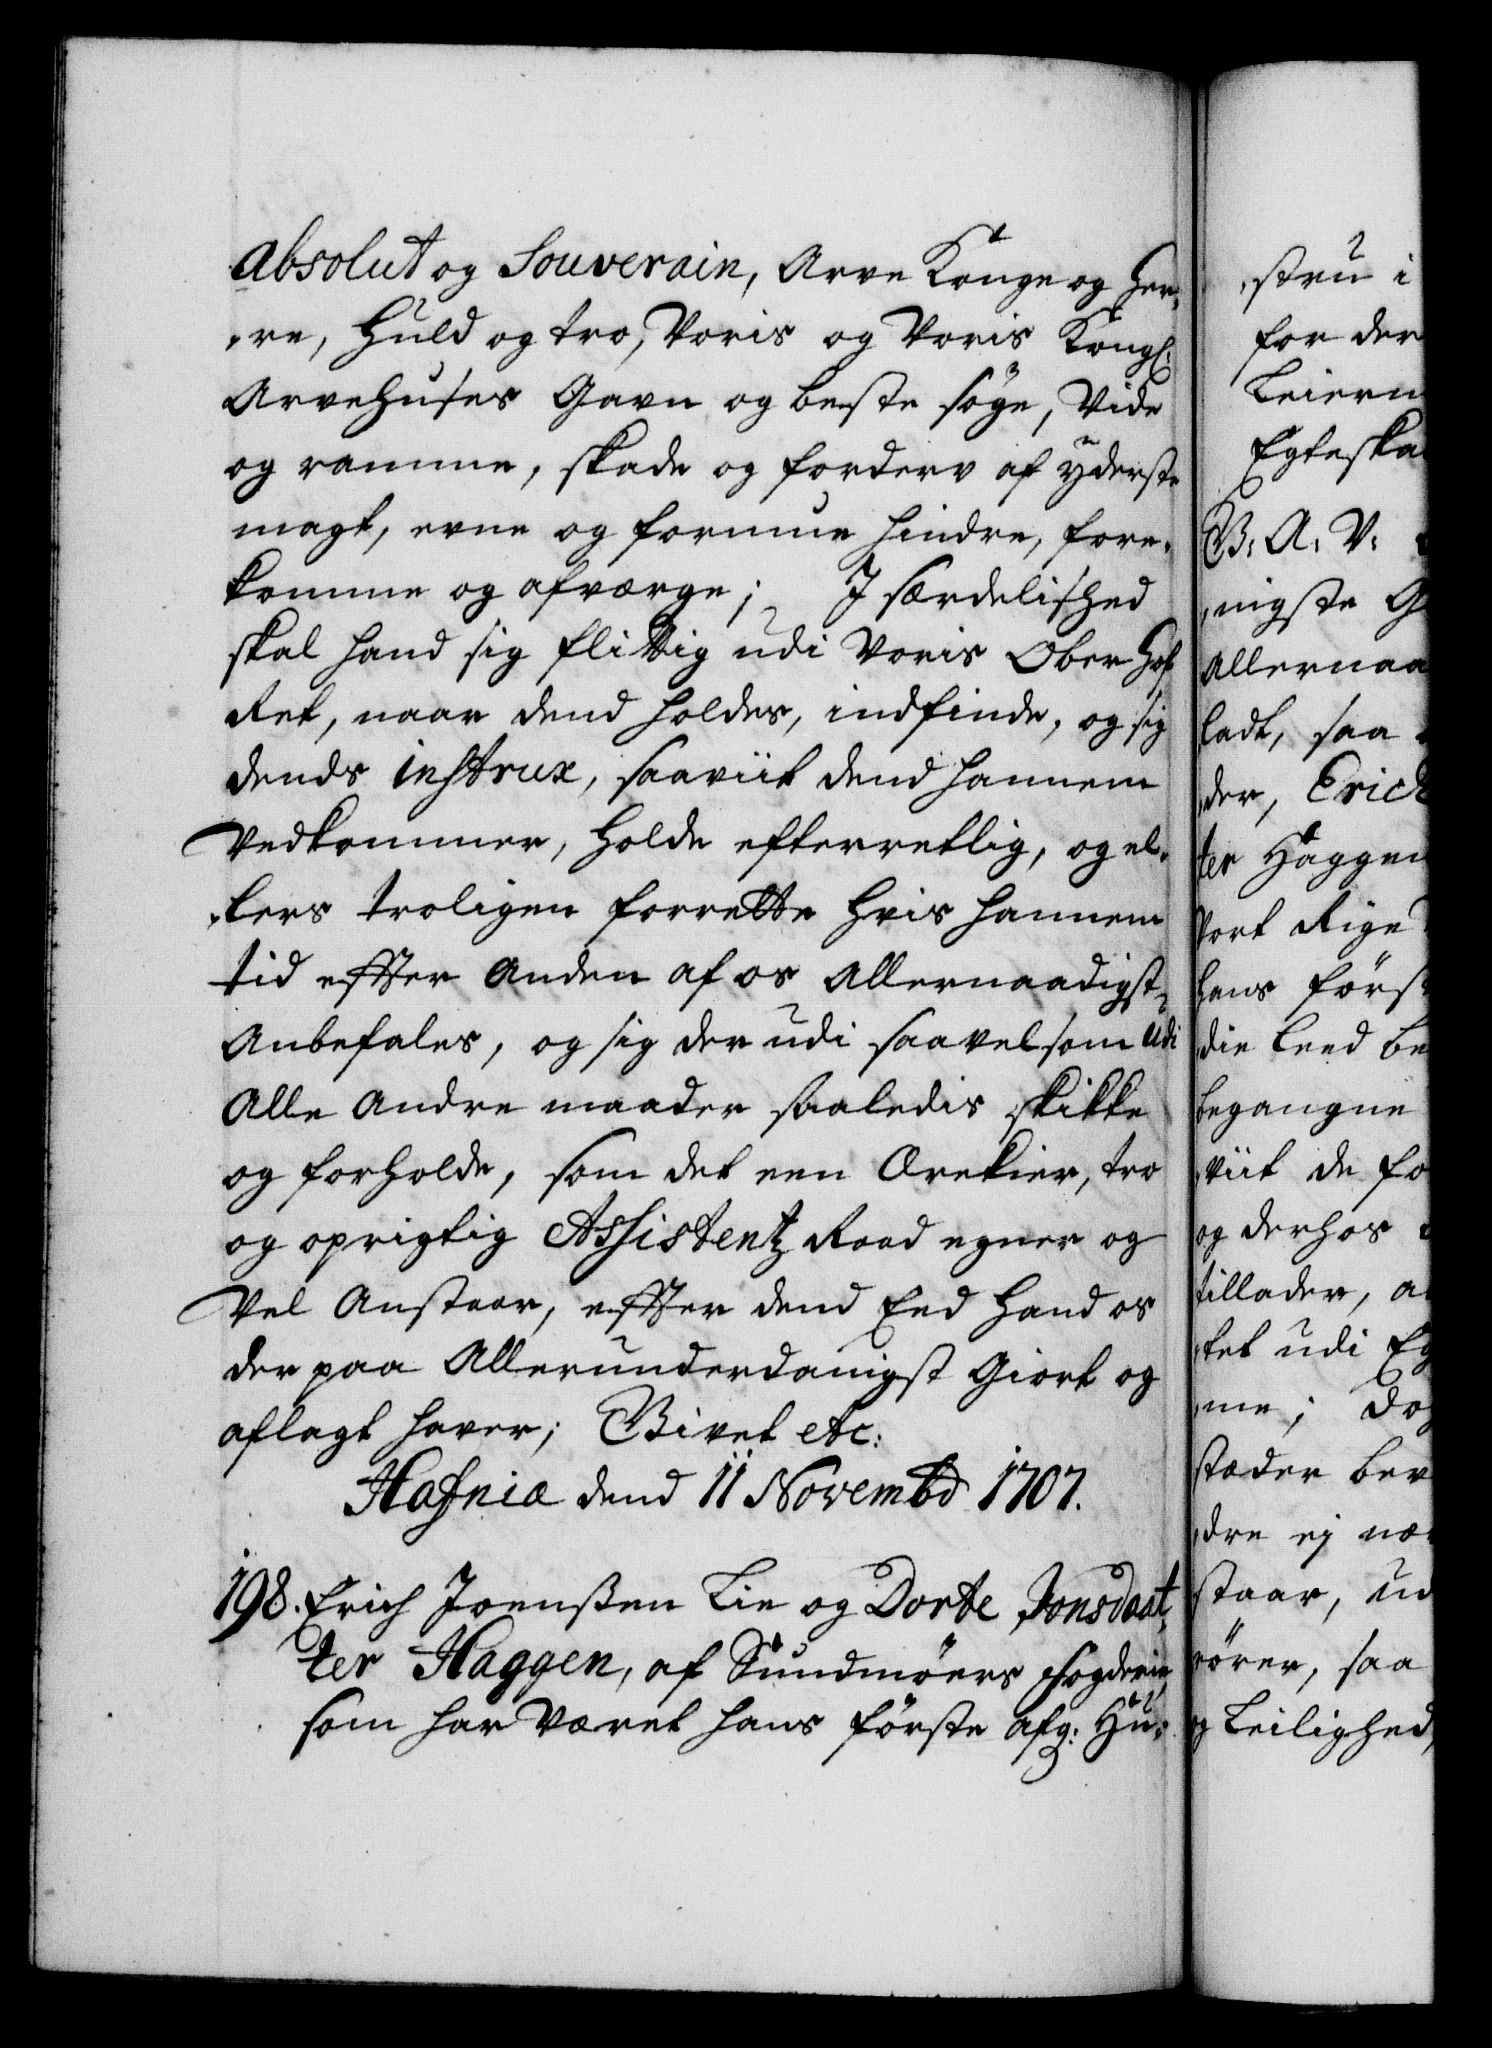 absolut og Souverain, Arve Konge og Her-
-re, Huld og tro, Voris og Voris Kongl:
Arvehuses Gavn og beste söge, Vide
og ramme, skade og forderv af ÿderste
magt, evne og formue hindre, fore-
komme og afværge; I særdelished
skal hand sig flittig udi Voris Ober Hof
Ret, naar dend holdes, indfinde, og sig
dends instrux, saaviit dend hannem
Vedkommer, holde efterretlig, og el-
-lers troligen forrette hvis hannem
tid effter Anden af os Allernaadigst
Anbefales, og sig der udi saavelsom udi
Alle Andre maader saaledis skikke
og forholde, som det een Ærekier, tro
og oprigtig Assistentz Raad egner og
Vel Anstaar, effter dend Eed hand os
der paa Allerunderdanigst Giort og
aflagt haver; Bivet etc:
Hafniæ dend 11 Novembd 1707.
198. Erich Joenssen Lie og Dorte Jonsdaat-
ter Haggen, af Sundmöers fogderie
som har Været hans förste afg: Hu-
-stru i
for der
Leierm
Egteska
B: A: V:
-nigste G
Allernaa
ladt, saa
der, Erich
ter Haggen
Vort Rige
hans först
die Leed be
begangne
viit de fo
og derhos
tillader, a
-tet udi Eg
-me; Do
stæder bev
-dre ej næ
staar, ud
rörer, saa
og Leilighed,